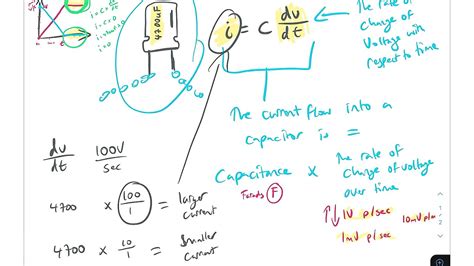 4700uF
i = C dv/dt
The rate of
change of
Voltage with
respect to time
The current flow into a
capacitor is =
Capacitance × The rate of
change of voltage
over time
Farads F
dv/dt 100V/sec
4700 × 100/1 = larger
current
4700 × 10/1 = Smaller
current
↑↓ 1V p/sec
1mV p/sec